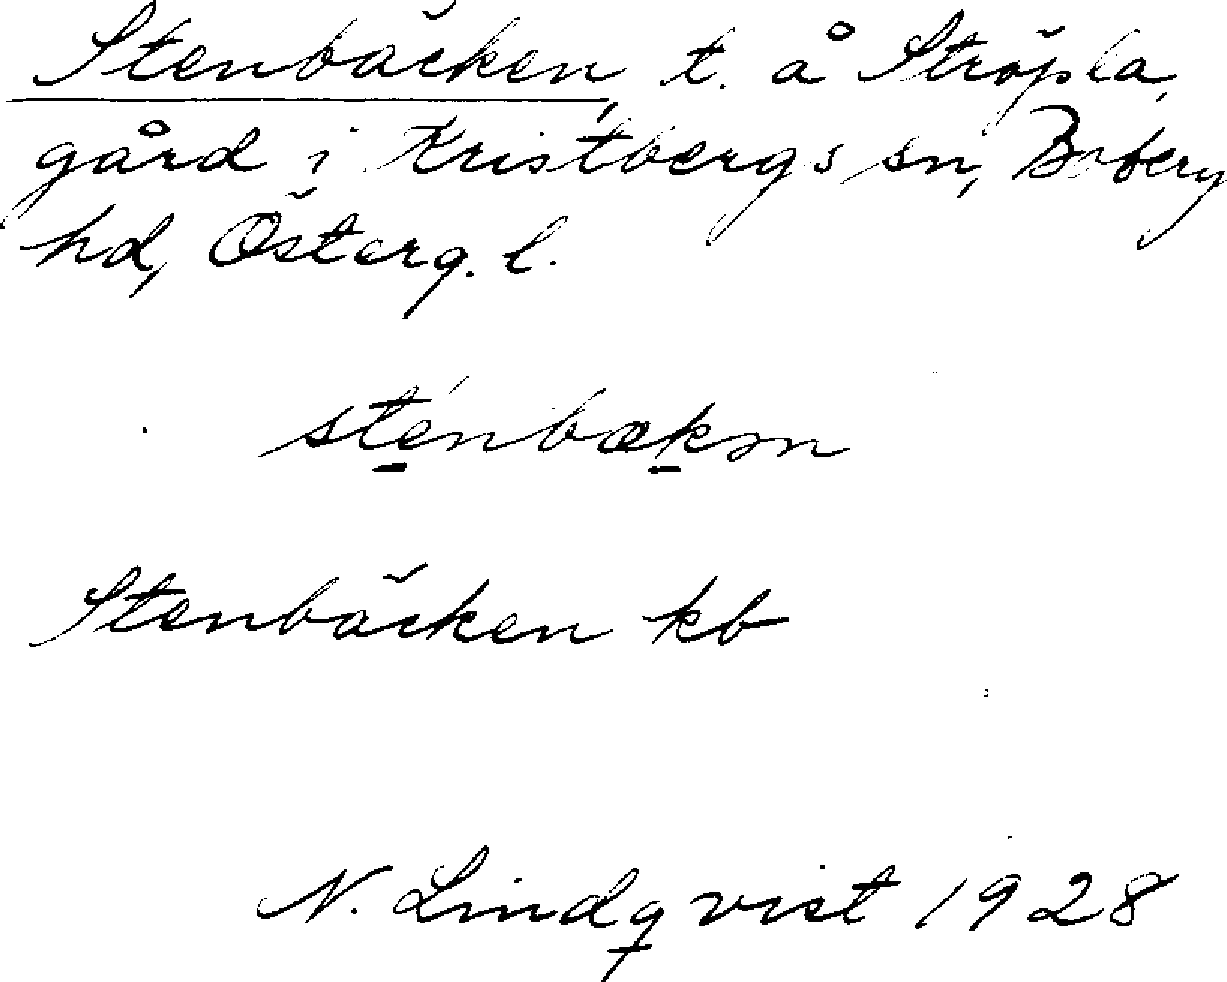 Stenbäcken, t. å Ströpla,
gård i Kristbergs sn, Boberg
hd, Österg. l.
sténbækən
Stenbäcken kb
N. Lindqvist 1928